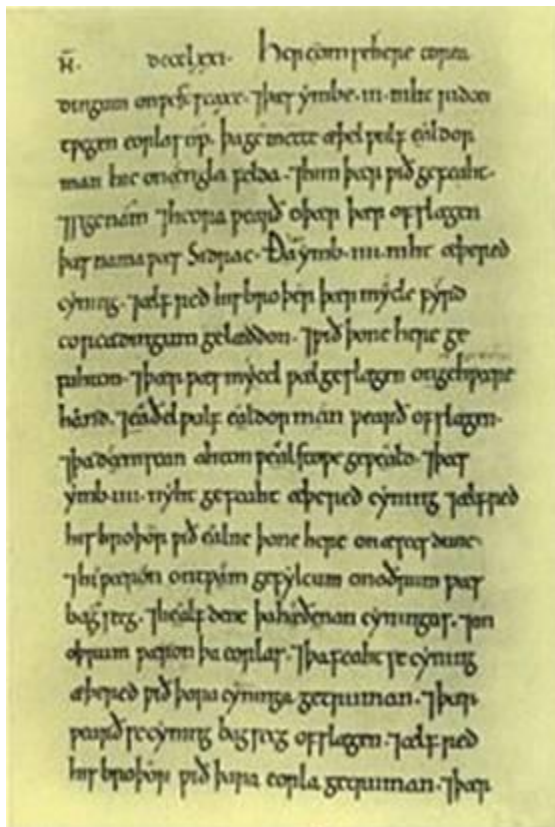 dccclxxi. her com se here to rea
dingum on ƿestseaxe. ⁊ þæs ymbe .iii. niht ridon
tƿegen eorlas up. þa gemette æþelƿulf ealdor
man hie on ængla felda. ⁊ him þær ƿið gefeaht.
⁊ sige nam. ⁊ heora ƿearð oþær þær ofslægen
þæs nama ƿæs Sidrac. Ða ymb .iiii. niht æþered
cyning. ⁊ ælfred his broþer þær mycle fyrd
to readingum gelæddon. ⁊ ƿið þone here ge
fuhton. ⁊ þær ƿæs mycel ƿælgeslægen on gehƿæþere
hand. ⁊ eaðelƿulf ealdorman ƿearð ofslægen.
⁊ þa deniscan ahton ƿælstoƿe geƿeald. ⁊ þæs
ymb .iiii. nyht gefeaht æþered cyning ⁊ ælfred
his broþor ƿið ealne þone here on æscesdune
⁊ hi ƿæron on tƿam gefylcum on oðrum ƿæs
bagsecg. ⁊ healfdene þa hæðenan cyningas. ⁊ on
oþrum ƿæron þa eorlas. ⁊ þa feaht se cyning
æþered ƿið þara cyninga getruman. ⁊ þær
ƿearð se cyning bagsecg ofslægen. ⁊ ælfred
his broþor ƿið þara eorla getruman. ⁊ þær